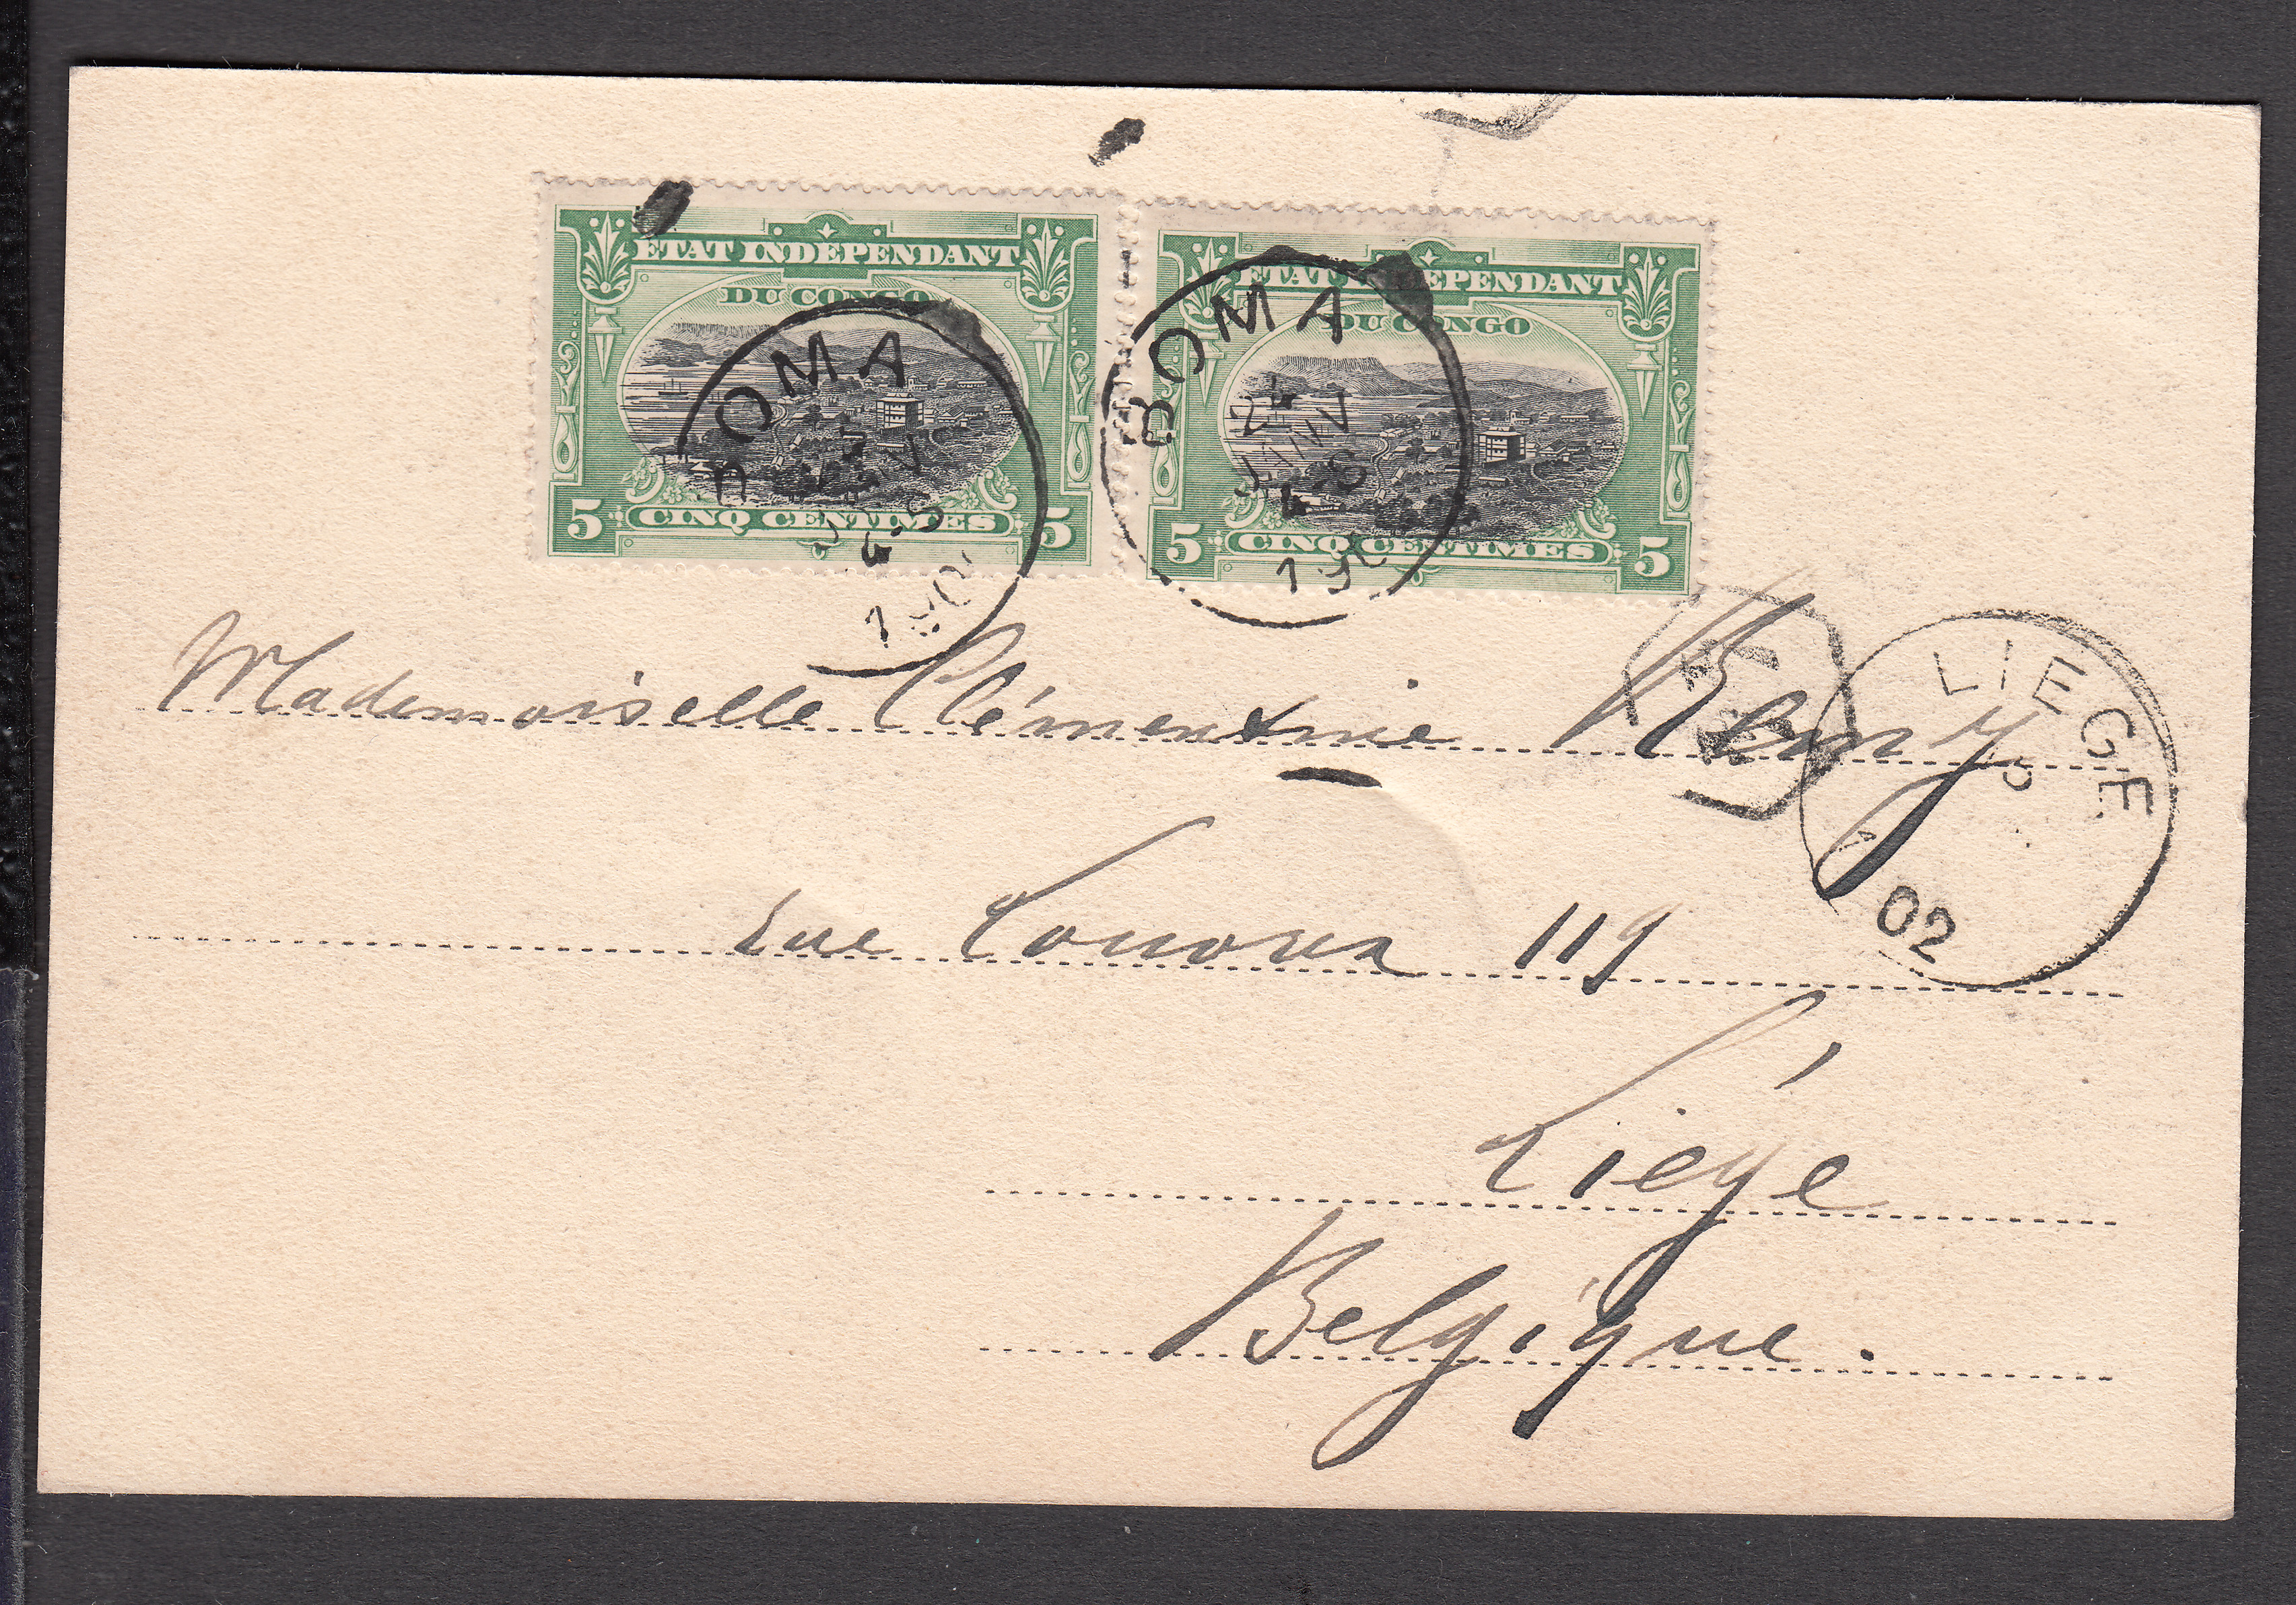 ETAT INDEPENDANT
DU CONGO
5 CINQ CENTIMES 5
ETAT INDEPENDANT
DU CONGO
5 CINQ CENTIMES 5
BOMA
4-5
BOMA
24
JANV
4-5
Mademoiselle Clémentine Remy
LIEGE
02
rue 119
Liége
Belgique.